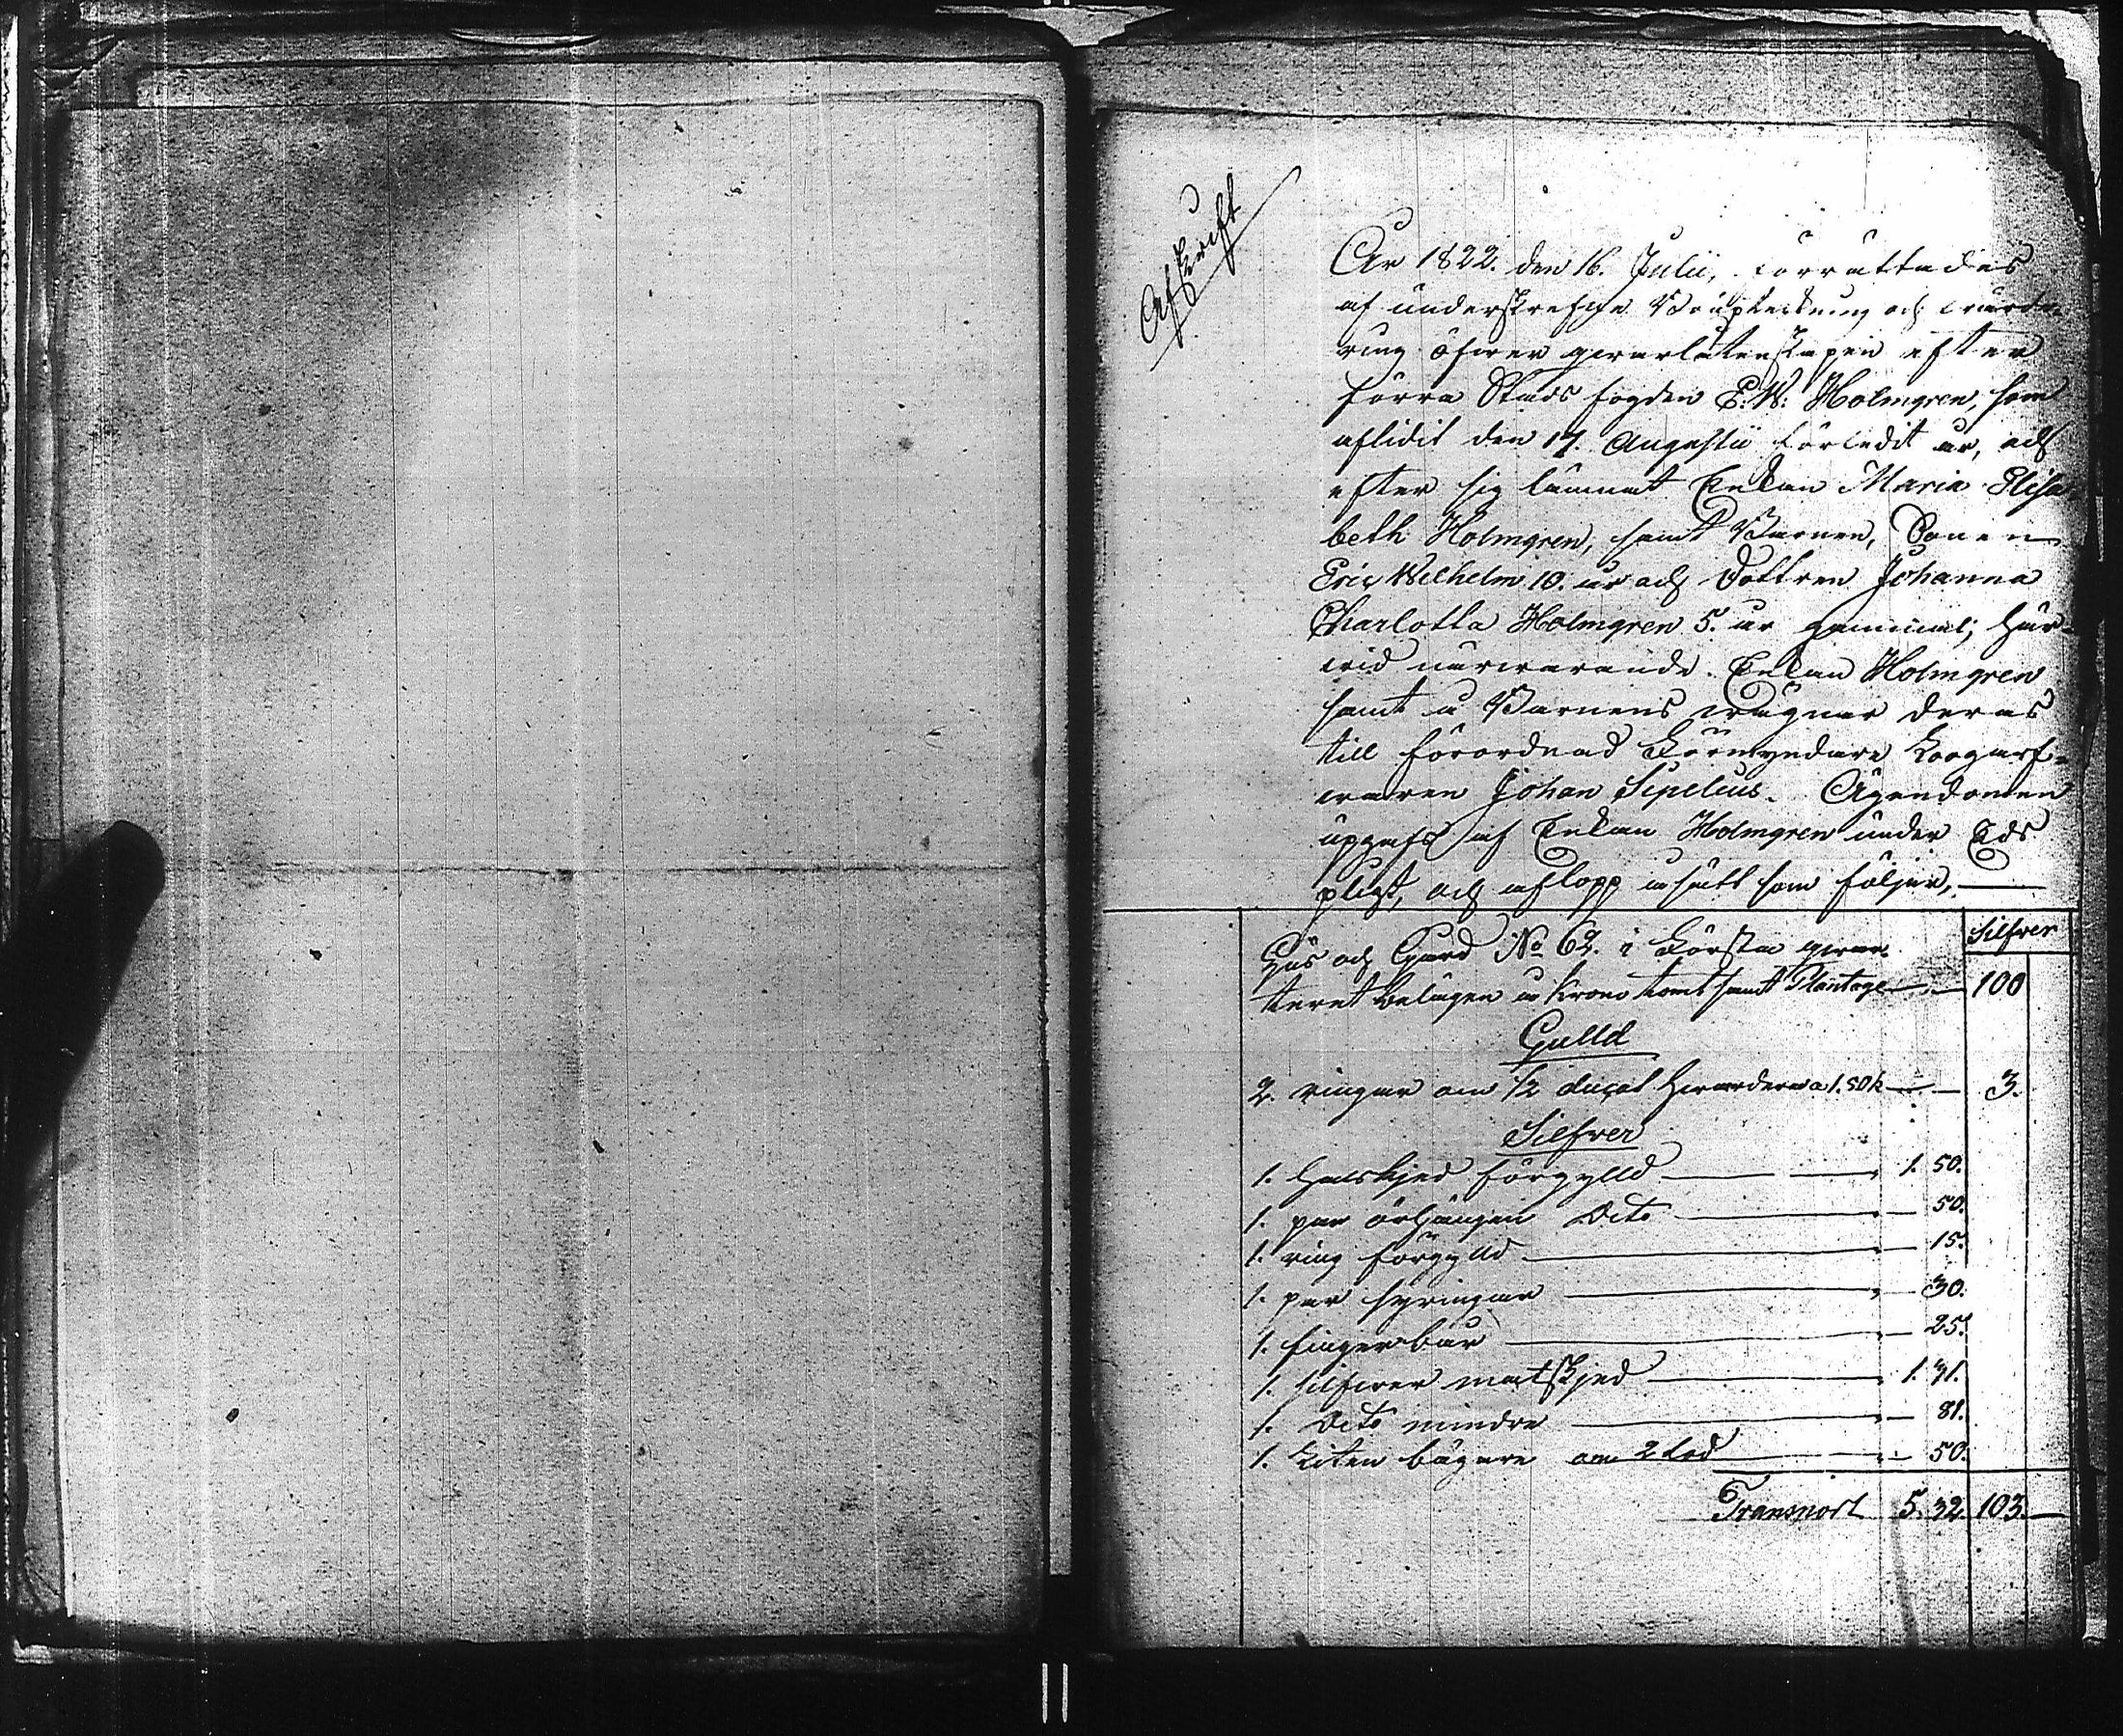 Afskrift
År 1822. den 16. Julii, förrättades
af underskrefne Bouptekning och wärde-
ring öfwer qwarlåtenskapen efter
förra Stads fogden E: W: Holmgren, som
aflidit den 17. Augustii förledit år, och
efter sig lämnat Enkan Maria Elisa-
beth Holmgren, samt Barnen, Sonen
Eric Wilhelm 10. år och Dottren Johanna
Charlotta Holmgren 5. år gammal; här-
wid närwarande Enkan Holmgren
samt å Barnens wägnar deras
till förordnad Förmyndare Logarf-
waren Johan Sipelius. Ägendomen
upgafs af Enkan Holmgren under Eds
pligt, och aflopp såsätt som följer,
Silfwer
Hus och Gård No 62. i Första qwar-
teret belägen å Krono tomt samt Plantage — 100
Gulld
2. ringar om 1/2 ducat hwardera a 1. 50 k — 3.
Silfver
1. Halskjed förgylld — 1. 50.
1. par örhängen Dito — 50.
1. ring förgylld — 15.
1. par syringar — 30.
1. fingerbår — 25.
1. silfwer matskjed — 1. 31.
1. Dito mindre — 81.
1. Liten bägare om 2 Lod — 50.
Transport 5. 32. 103. —